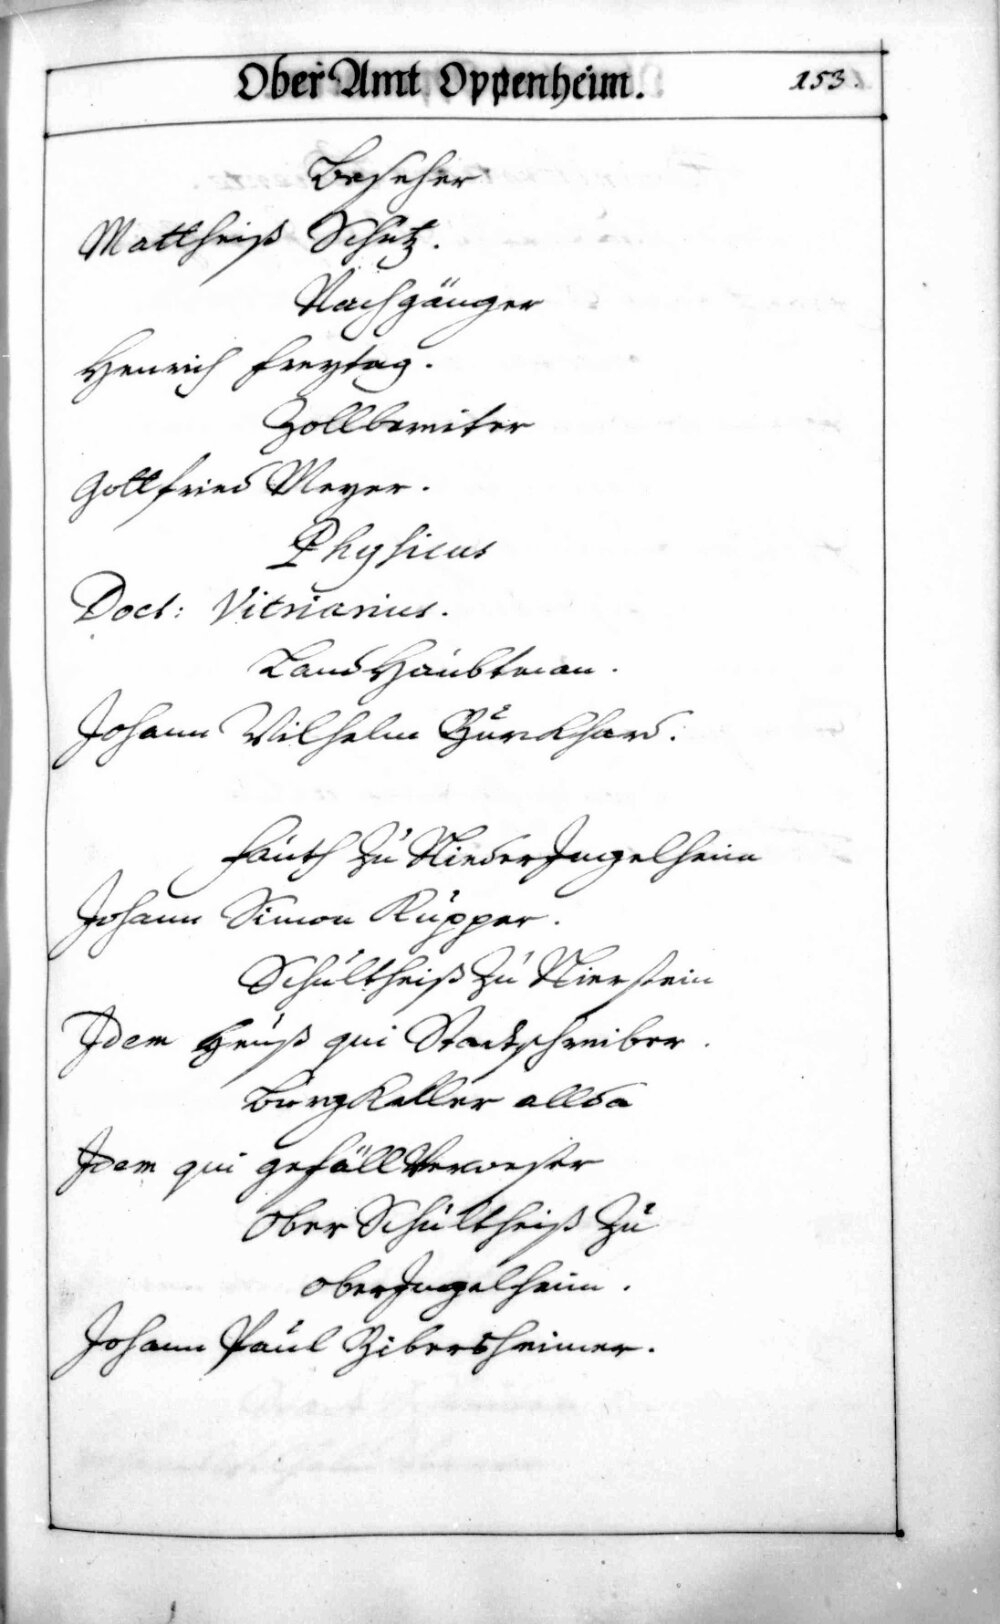 Ober Amt Oppenheim.
153.
Beseher
Mattheiß Schütz.
Nachgänger
Henrich Freytag.
Zollbereiter
Gottfried Meyer.
Physicus
Doct: Vitriarius.
Land Haubtman.
Johann Wilhelm Burkhard.
Fauth zu Nieder Ingelheim
Johann Simon Küpper.
Schultheiß zu Nierstein
Idem Heuß qui Stadtschreiber.
Burg Keller allda
Idem qui gefäll Verweser
Ober Schultheiß zu
ober Ingelheim.
Johann Paul